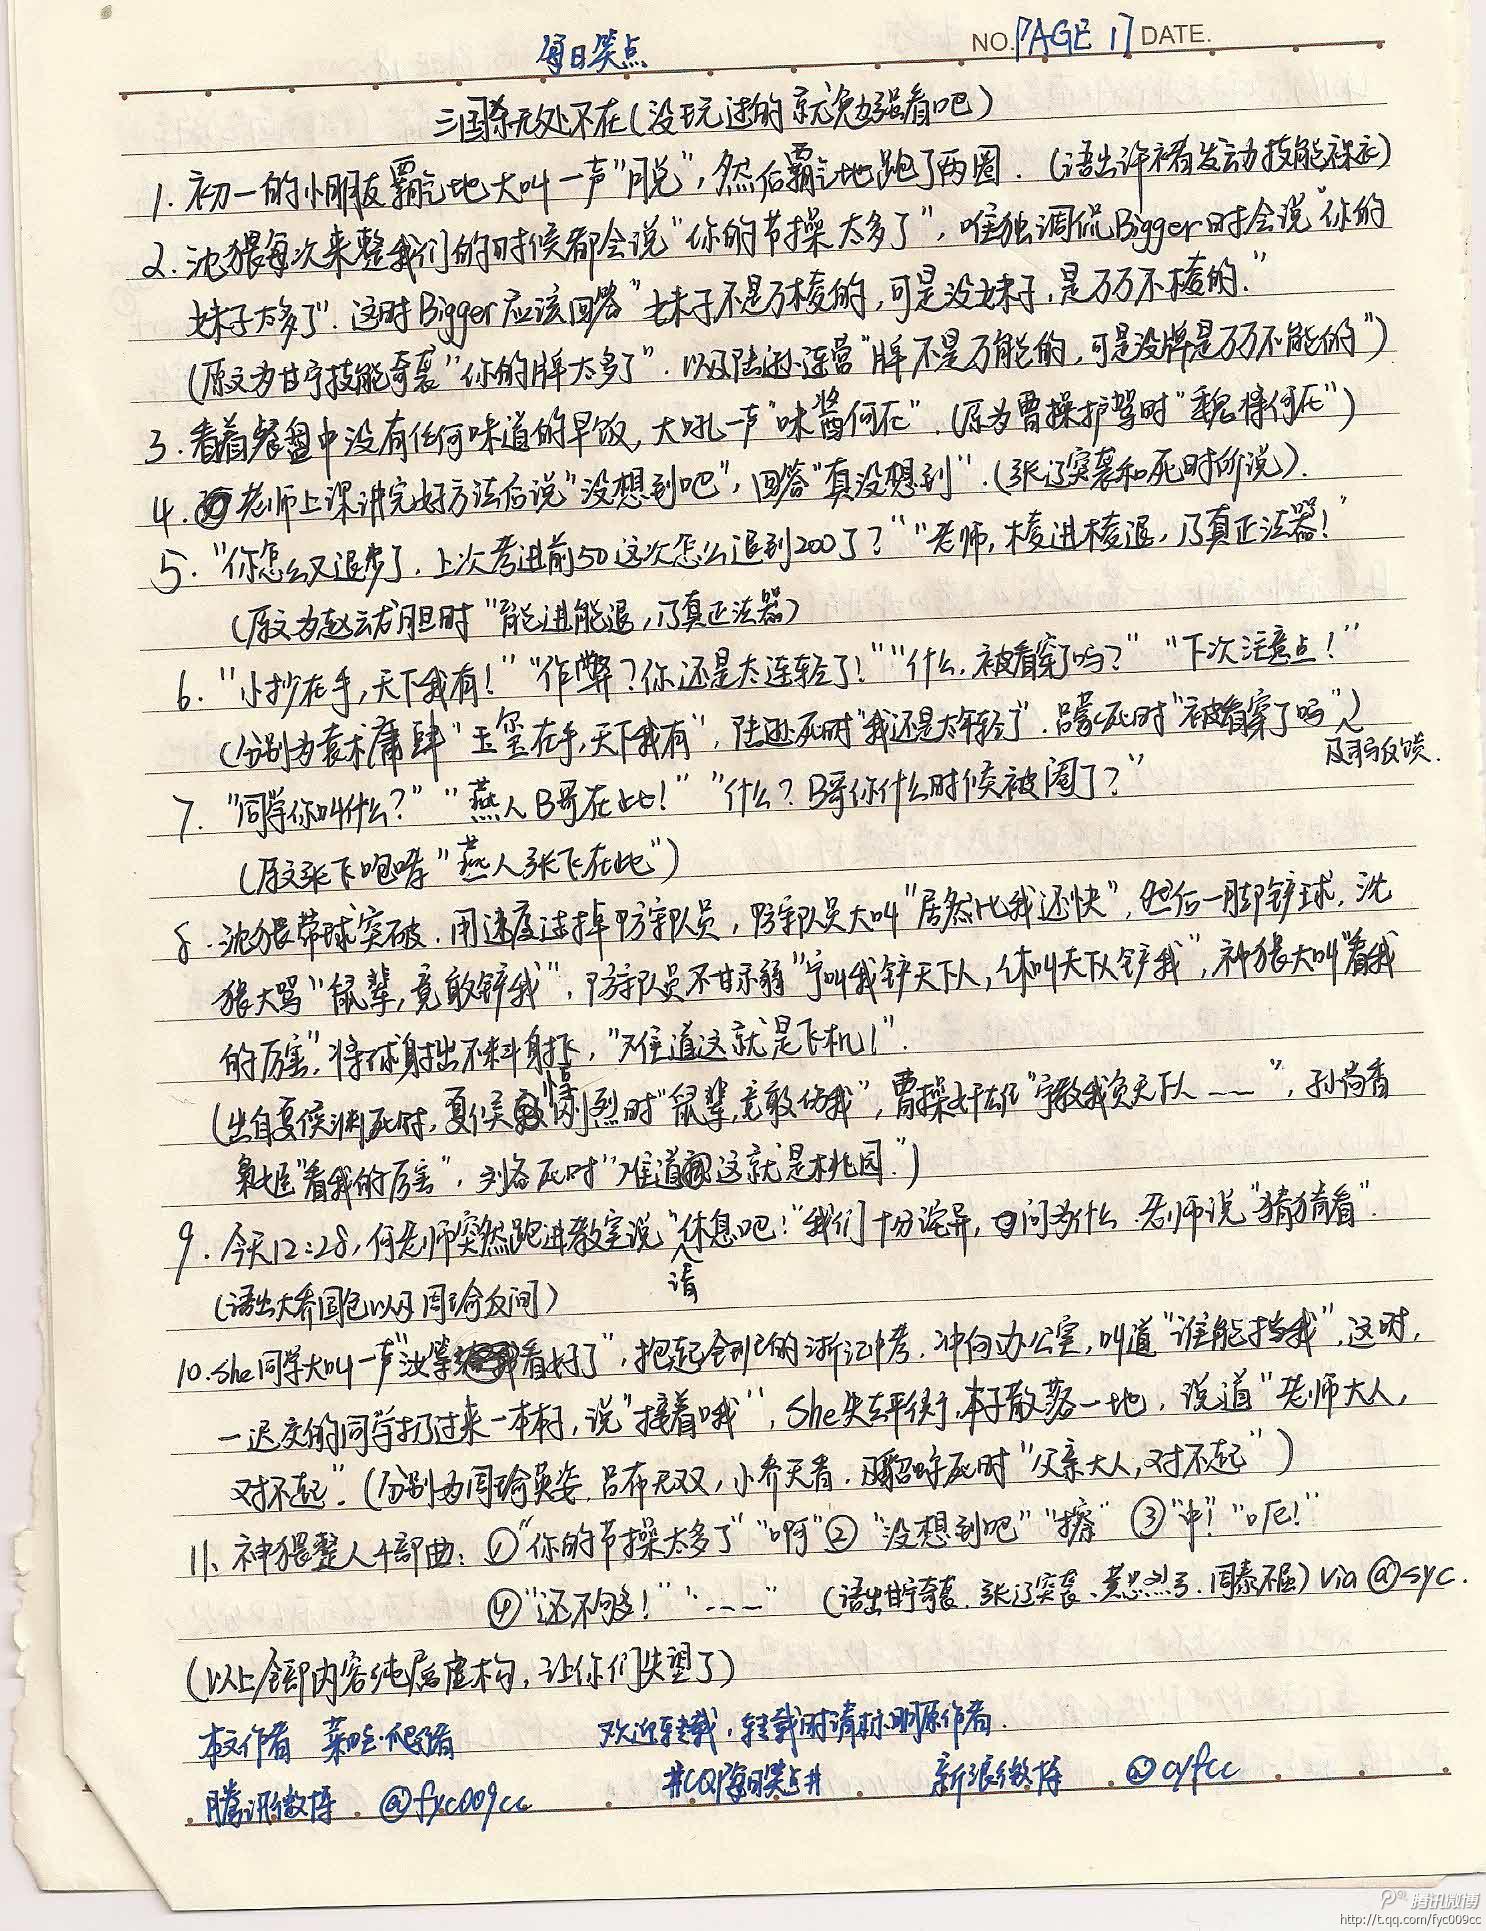 每日笑点
NO. PAGE 17 DATE.
三国杀无处不在(没玩过的就勉强看吧)
1. 初一的小朋友霸气地大叫一声"脱",然后霸气地跑了两圈. (语出许褚发动技能裸衣)
2. 沈猥每次来整我们的时候都会说"你的节操太多了",唯独调侃Bigger时会说"你的
妹子太多了".这时Bigger应该回答"妹子不是万棱的,可是没妹子,是万万不棱的."
(原文为甘宁技能奇袭"你的牌太多了".以及陆逊连营"牌不是万能的,可是没牌是万万不能的")
3. 看着餐盘中没有任何味道的早饭,大吼一声"味酱何在".(原为曹操护驾时"魏将何在")
4. 老师上课讲完好方法后说"没想到吧",回答"真没想到".(张辽突袭和死时所说).
5. "你怎么又退步了.上次考进前50这次怎么退到200了?" "老师,棱进棱退,乃真正法器!"
(原文为赵云龙胆时"能进能退,乃真正法器)
6. "小抄在手,天下我有!" "作弊?你还是太连轻了!" "什么,被看穿了吗?" "下次注意点!"
(分别为袁术庸肆"玉玺在手,天下我有",陆逊死时"我还是太年轻了".吕蒙死时"被看穿了吗")
及司马反馈.
7. "同学你叫什么?" "燕人B哥在此!" "什么?B哥你什么时候被阉了?"
(原文张飞咆哮"燕人张飞在此")
8. 沈猥带球突破.用速度过掉防守队员,防守队员大叫"居然比我还快",然后一脚铲球,沈
猥大骂"鼠辈,竟敢铲我",防守队员不甘示弱"宁叫我铲天下人,休叫天下人铲我",神猥大叫"看我
的厉害",将球射出不料射飞,"难道这就是飞机!".
(出自夏侯渊死时,夏侯惇刚烈时"鼠辈,竟敢伤我",曹操奸雄"宁教我负天下人……",孙尚香
枭姬"看我的厉害",刘备死时"难道这就是桃园.")
9. 今天12:28,何老师突然跑进教室说"请休息吧!"我们十分诧异,问为什么.老师说"猜猜看".
(语出大乔国色以及周瑜反间)
10. She同学大叫一声"汝等看好了",抱起全班的浙江中考.冲向办公室,叫道"谁能挡我",这时,
一迟交的同学扔过来一本本子,说"接着哦",She失去平衡,本子散落一地,说道"老师大人,
对不起".(分别为周瑜英姿.吕布无双,小乔天香.及貂蝉死时"父亲大人,对不起")
11、神猥整人4部曲: ①"你的节操太多了" "啊" ②"没想到吧" "擦" ③"中!" "呃!"
④"还不够!" "……" (语出甘宁奇袭.张辽突袭、黄忠烈弓.周泰不屈) via @syc.
(以上全部内容纯属虚构,让你们失望了)
本文作者 欢迎转载,转载时请标明原作者.
腾讯微博 @fyc009cc #CQF每日笑点# 新浪微博 @cyfcc
腾讯微博
http://t.qq.com/fyc009cc